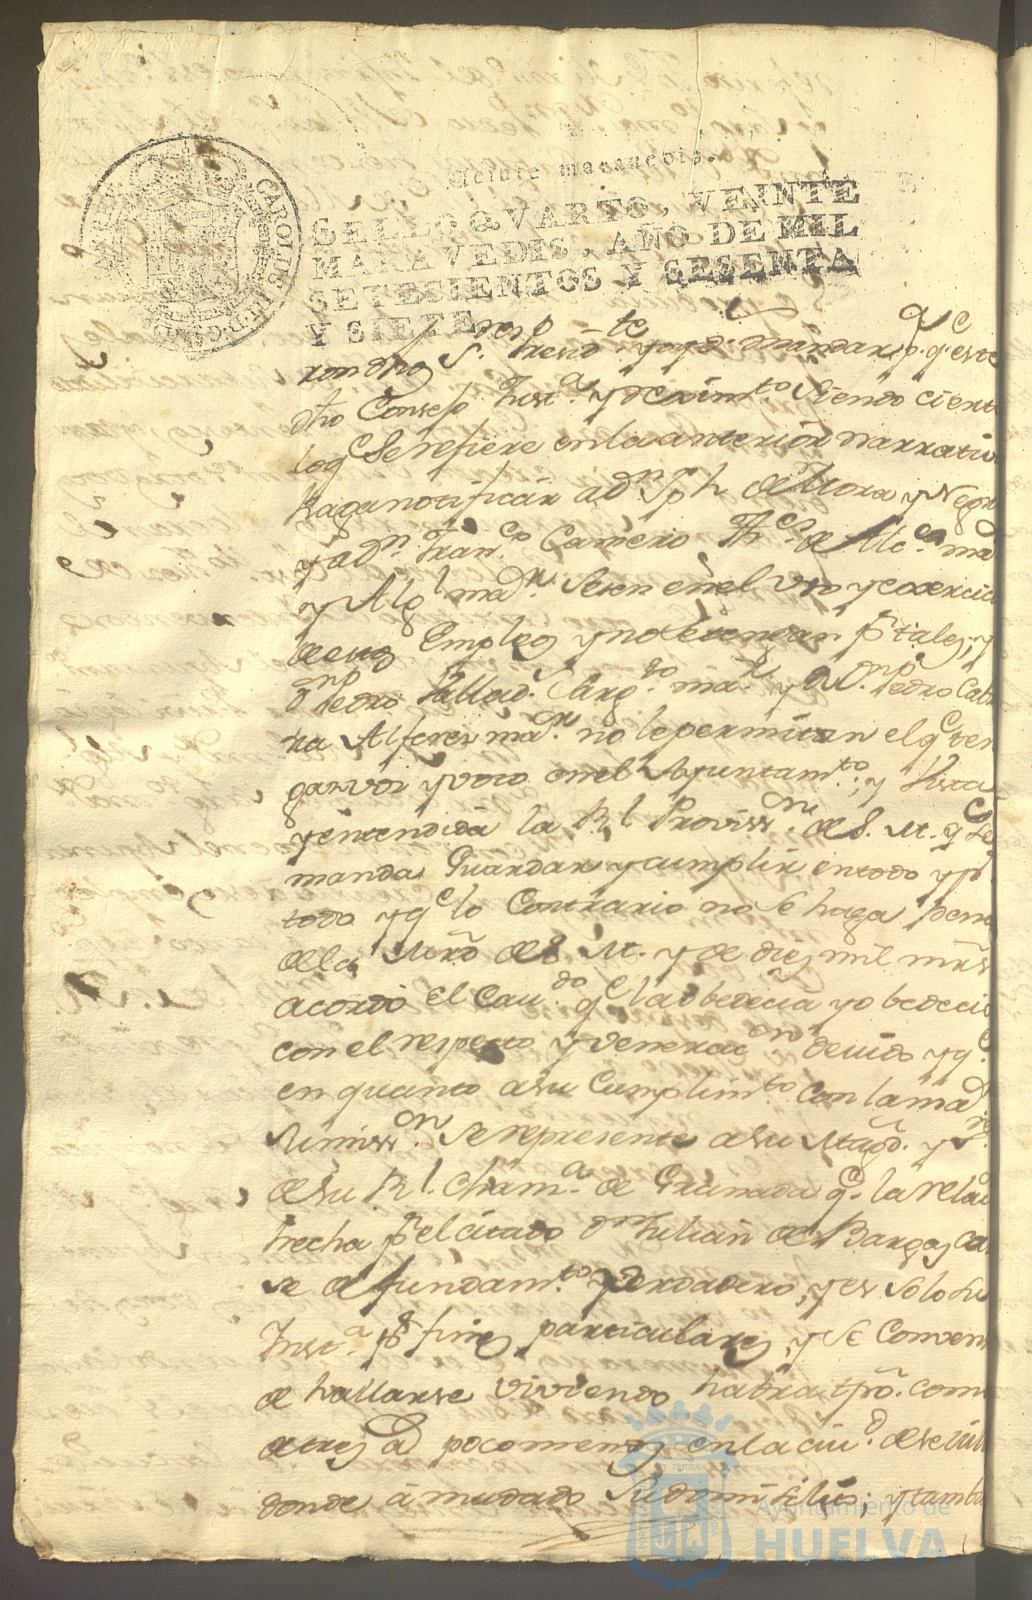 Veinte maravedis.
SELLO QVARTO, VEINTE
MARAVEDIS, AÑO DE MIL
SETECIENTOS Y SESENTA
Y SIETE.
CAROLUS III D G
ron dhos S.res Presid.te y oyd.s mandar q.e este
dho Consejo Just.a y Reximto. Siendo cierto
loq.e Se refiere enla anterior narrativa
haga notificar ad.n Jph de Mora y Negro
y ad.n Fran.co Camero Ale ma
y Alg.l ma.r Seten enel Vso y exercicio
desus Empleos yno le tengan p.r tales; y
d.n Pedro Sarg.to ma.r y a D.n Pedro
ra Alferes ma.r no lepermitan elq.e ten
gan voz y voto enel Ayuntam.to; y Vista
y entendida la R.l Proviss.on de S. M. q.e Se
manda Guardar y cumplir entodo y p.r
todo y q.e lo Contrario no Se haga pena
dela Mrd de S. M. y de diez mil mrs
acordo El Cau.do q.e la obedecia y obedecio
con el respecto y venerac.on devido y q.e
en quanto asu Cumplim.to con la ma.r
Sumiss.on Se represente asu Magd. y
desu R.l Cham.a de Granada q.e la rela
hecha p.r el citado d.n Julian de Bargas ca
se de fundam.to verdadero, y es solo su
Inst.a p.a fines particulares, y Se Conven
de hallarse viviendo habra tpo. como
detres a.s poco menos enla ciu.d de Sevill
donde a mudado Su domisilio; y tambn
Ayuntamiento de
HUELVA